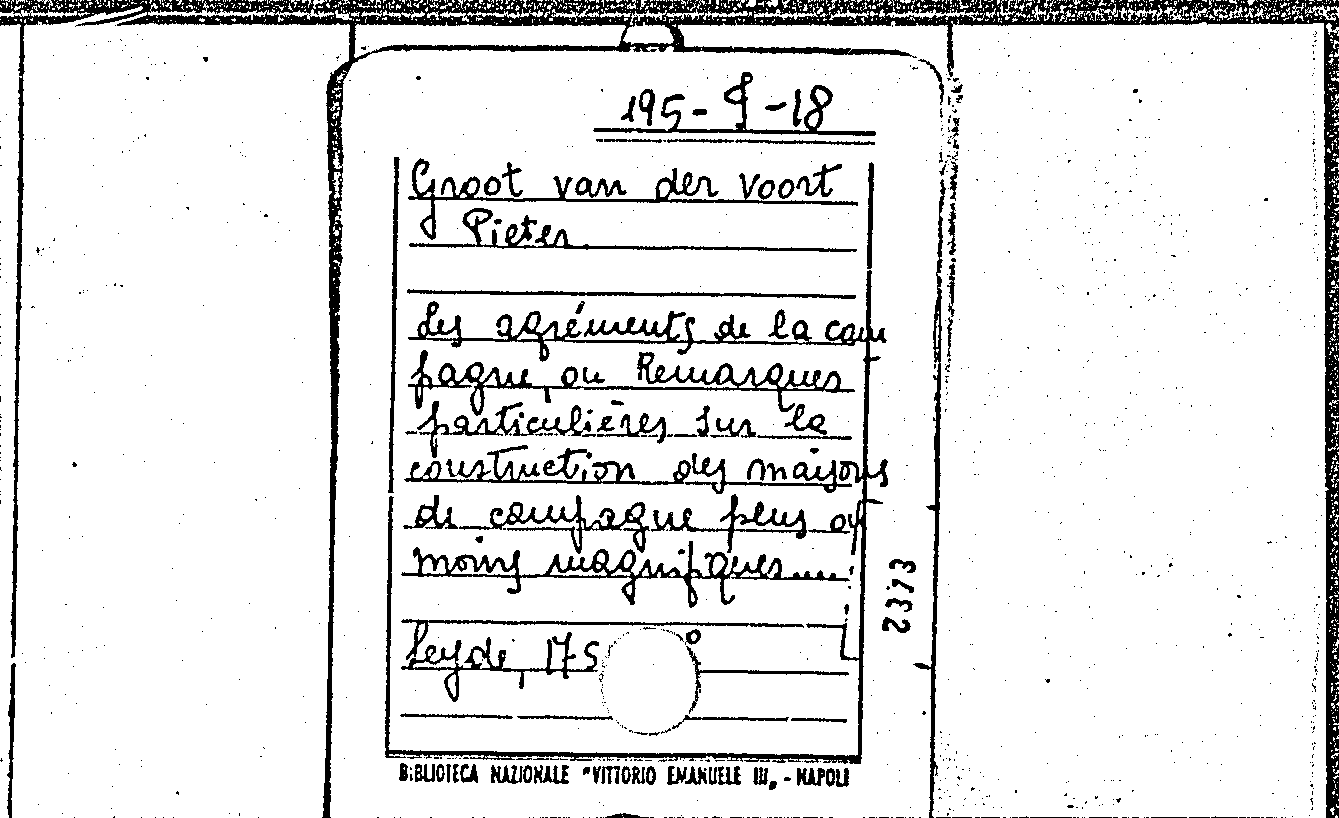 195-I-18
Groot van der Voort
Pieter.
Les agréments de la cam
pagne, ou Remarques
particulières sur la
construction des maisons
de campagne plus ou
moins magnifiques....
Leyde, 175
BIBLIOTECA NAZIONALE "VITTORIO EMANUELE III„ - NAPOLI
2373